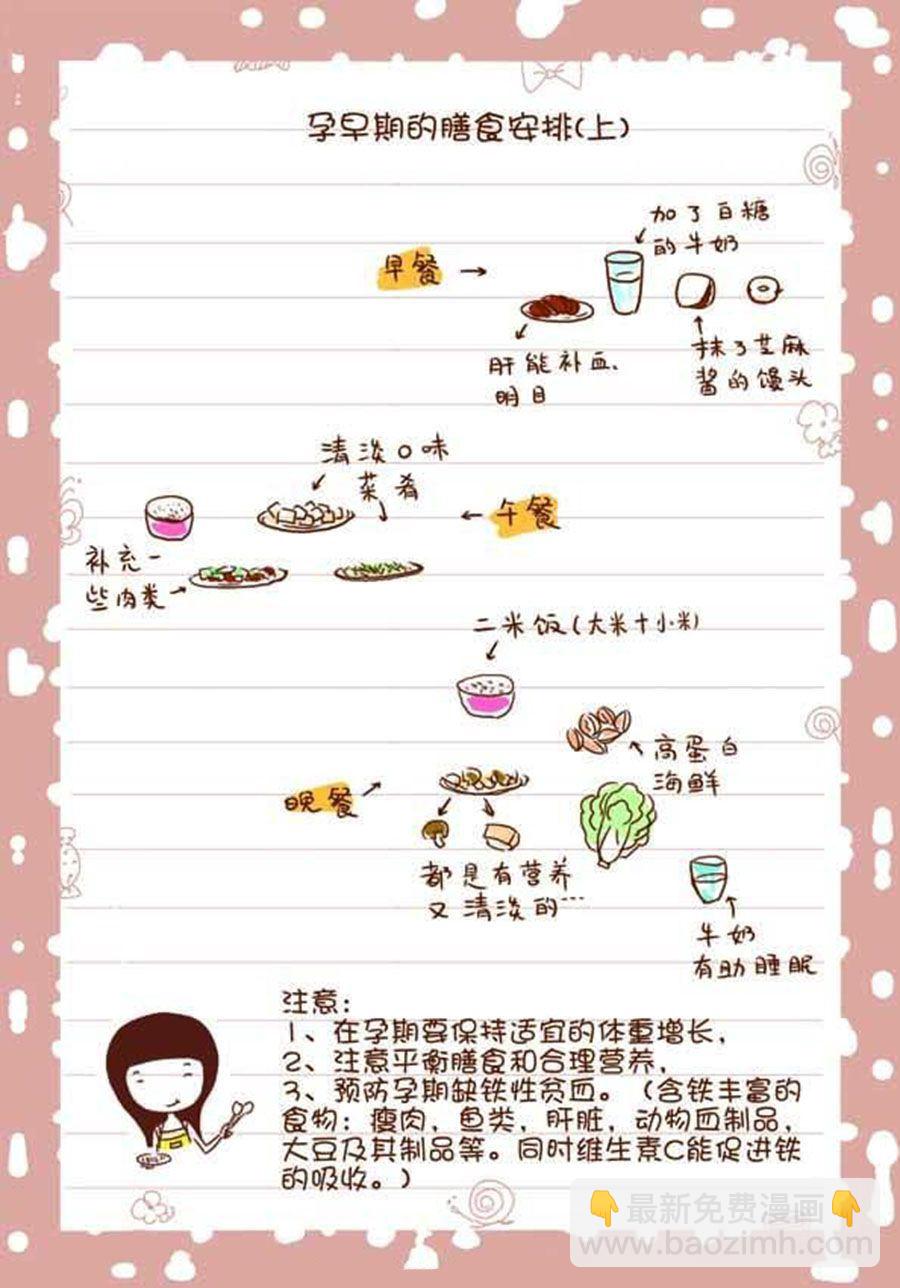 孕早期的膳食安排(上)
加了白糖
的牛奶
早餐
肝能补血、
明目
抹了芝麻
酱的馒头
清淡口味
菜肴
午餐
补充一
些肉类
二米饭(大米+小米)
高蛋白
海鲜
晚餐
都是有营养
又清淡的…
牛奶
有助睡眠
注意:
1、在孕期要保持适宜的体重增长,
2、注意平衡膳食和合理营养,
3、预防孕期缺铁性贫血。(含铁丰富的
食物:瘦肉,鱼类,肝脏,动物血制品,
大豆及其制品等。同时维生素C能促进铁
的吸收。)
👇最新免费漫画👇
www.baozimh.com